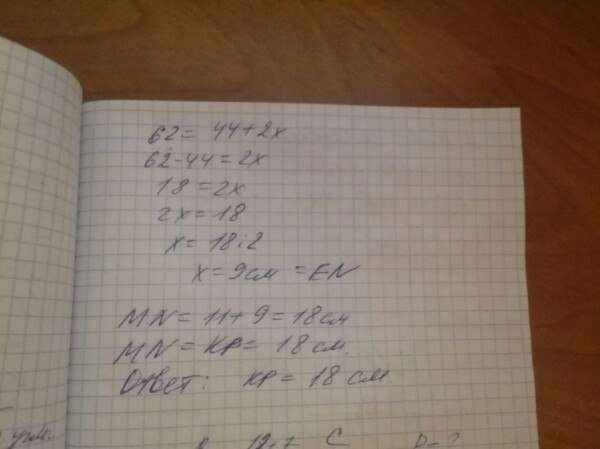 62 = 44 + 2x
62 - 44 = 2x
18 = 2x
2x = 18
x = 18 : 2
x = 9 см = EN
MN = 11 + 9 = 18 см
MN = KP = 18 см.
Ответ: KP = 18 см
12,7 C